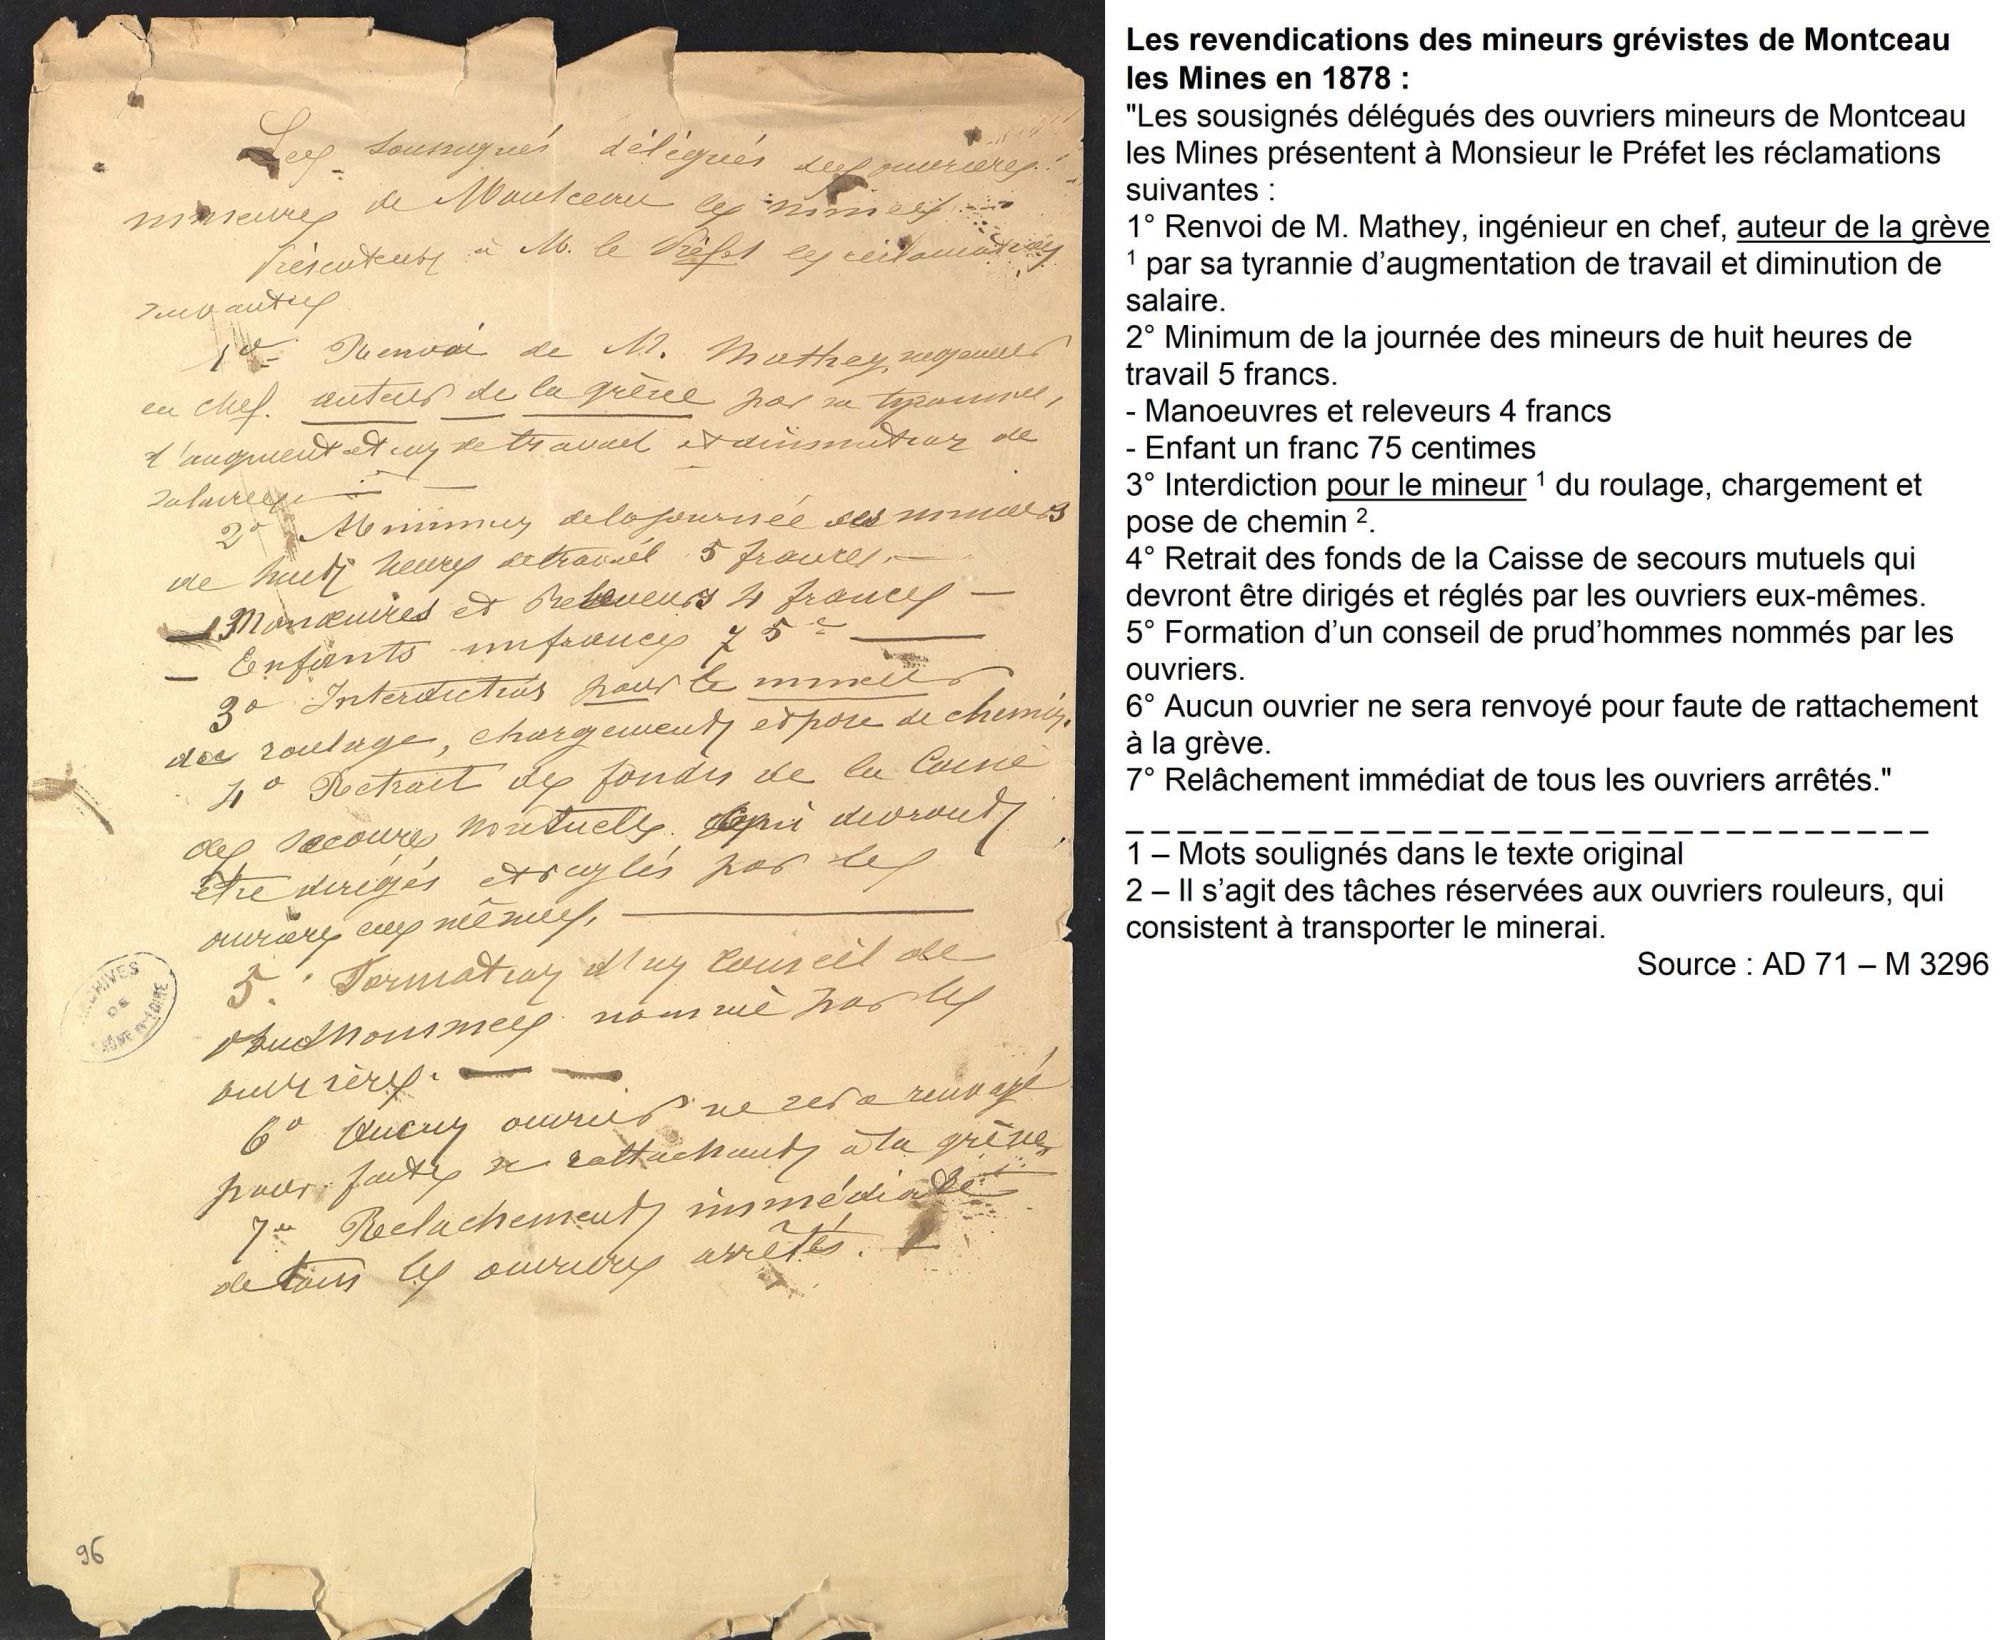 Les soussignés délégués des ouvriers
mineurs de Montceau les mines
Présentent à M. le Préfet les réclamations
suivantes
1º Renvoi de M. Mathey, ingénieur
en chef. auteur de la grève par sa tyrannie,
d'augmentation de travail et diminution de
salaires
2º Minimum de la journée des mineurs
de huit heures de travail 5 francs.
— Manœuvres et Releveurs 4 francs —
— Enfants un francs 75 c
3º Interdiction pour le mineur
du roulage, chargement et pose de chemin.
4º Retrait des fonds de la Caisse
des secours Mutuels qui devront
être dirigés et réglés par les
ouvriers eux mêmes.
5. Formation d'un Conseil de
prudhommes nommé par les
ouvriers.
6º Aucun ouvrier ne sera renvoyé
pour faits se rattachant à la grève
7º Relachement immédiat
de tous les ouvriers arrêtés.
ARCHIVES
DE
SAÔNE-ET-LOIRE
96
Les revendications des mineurs grévistes de Montceau
les Mines en 1878 :
"Les sousignés délégués des ouvriers mineurs de Montceau
les Mines présentent à Monsieur le Préfet les réclamations
suivantes :
1° Renvoi de M. Mathey, ingénieur en chef, auteur de la grève
1 par sa tyrannie d’augmentation de travail et diminution de
salaire.
2° Minimum de la journée des mineurs de huit heures de
travail 5 francs.
- Manoeuvres et releveurs 4 francs
- Enfant un franc 75 centimes
3° Interdiction pour le mineur 1 du roulage, chargement et
pose de chemin 2.
4° Retrait des fonds de la Caisse de secours mutuels qui
devront être dirigés et réglés par les ouvriers eux-mêmes.
5° Formation d’un conseil de prud’hommes nommés par les
ouvriers.
6° Aucun ouvrier ne sera renvoyé pour faute de rattachement
à la grève.
7° Relâchement immédiat de tous les ouvriers arrêtés."
1 – Mots soulignés dans le texte original
2 – Il s’agit des tâches réservées aux ouvriers rouleurs, qui
consistent à transporter le minerai.
Source : AD 71 – M 3296